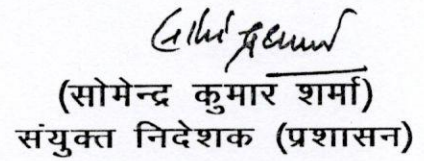 (सोमेन्द्र कुमार शर्मा)
संयुक्त निदेशक (प्रशासन)